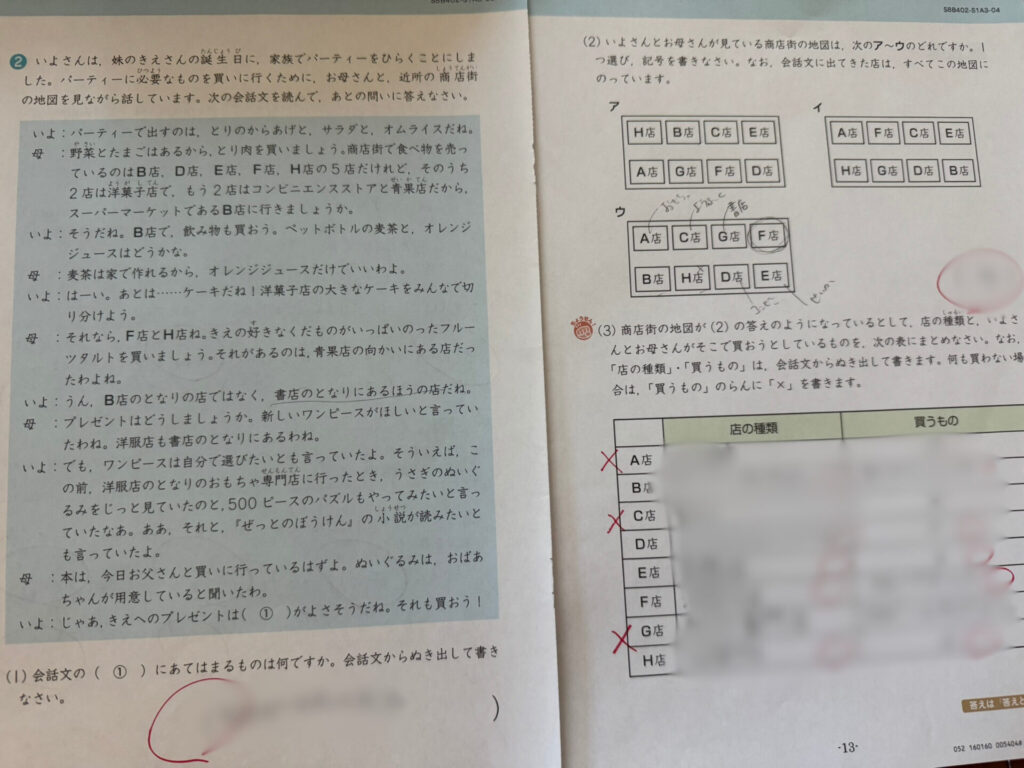 S8B402-S1A3-04
❷ いよさんは，妹のきえさんの誕生日に，家族でパーティーをひらくことにしま
した。パーティーに必要なものを買いに行くために，お母さんと，近所の商店街
の地図を見ながら話しています。次の会話文を読んで，あとの問いに答えなさい。
いよ：パーティーで出すのは，とりのからあげと，サラダと，オムライスだね。
母　：野菜とたまごはあるから，とり肉を買いましょう。商店街で食べ物を売っ
ているのはB店，D店，E店，F店，H店の5店だけれど，そのうち
2店は洋菓子店で，もう2店はコンビニエンスストアと青果店だから，
スーパーマーケットであるB店に行きましょうか。
いよ：そうだね。B店で，飲み物も買おう。ペットボトルの麦茶と，オレンジ
ジュースはどうかな。
母　：麦茶は家で作れるから，オレンジジュースだけでいいわよ。
いよ：はーい。あとは……ケーキだね！洋菓子店の大きなケーキをみんなで切
り分けよう。
母　：それなら，F店とH店ね。きえの好きなくだものがいっぱいのったフルー
ツタルトを買いましょう。それがあるのは，青果店の向かいにある店だっ
たわよね。
いよ：うん，B店のとなりの店ではなく，書店のとなりにあるほうの店だね。
母　：プレゼントはどうしましょうか。新しいワンピースがほしいと言ってい
たわね。洋服店も書店のとなりにあるわね。
いよ：でも，ワンピースは自分で選びたいとも言っていたよ。そういえば，こ
の前，洋服店のとなりのおもちゃ専門店に行ったとき，うさぎのぬいぐ
るみをじっと見ていたのと，500ピースのパズルもやってみたいと言っ
ていたなあ。ああ，それと，『ぜっとのぼうけん』の小説が読みたいと
も言っていたよ。
母　：本は，今日お父さんと買いに行っているはずよ。ぬいぐるみは，おばあ
ちゃんが用意していると聞いたわ。
いよ：じゃあ，きえへのプレゼントは（　①　）がよさそうだね。それも買おう！
(1) 会話文の（　①　）にあてはまるものは何ですか。会話文からぬき出して書き
なさい。
)
S8B402-S1A3-04
(2) いよさんとお母さんが見ている商店街の地図は，次のア〜ウのどれですか。1
つ選び，記号を書きなさい。なお，会話文に出てきた店は，すべてこの地図に
のっています。
ア
H店 B店 C店 E店
A店 G店 F店 D店
イ
A店 F店 C店 E店
H店 G店 D店 B店
ウ
書店
A店 C店 G店 F店
B店 H店 D店 E店
ちょうせん
(3) 商店街の地図が(2)の答えのようになっているとして，店の種類と，いよさ
んとお母さんがそこで買おうとしているものを，次の表にまとめなさい。なお，
「店の種類」・「買うもの」は，会話文からぬき出して書きます。何も買わない場
合は，「買うもの」のらんに「×」を書きます。
店の種類 買うもの
A店
B店
C店
D店
E店
F店
G店
H店
答えは「答えと
-13-
052 160160 0054048